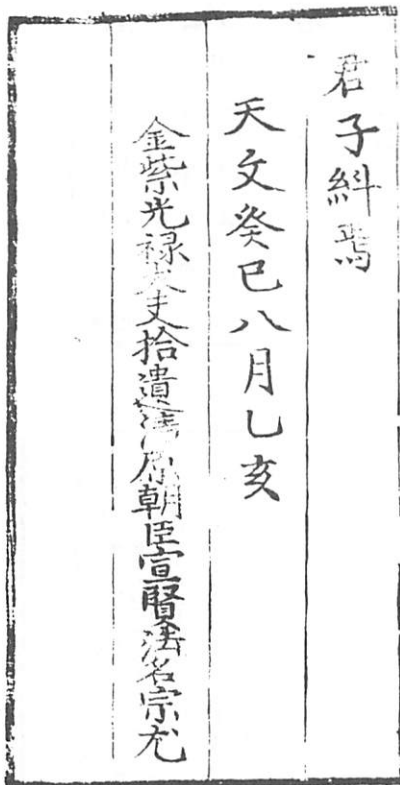 君子紏焉
天文癸巳八月乙亥
金紫光禄大夫拾遺清原朝臣宣賢法名宗尤